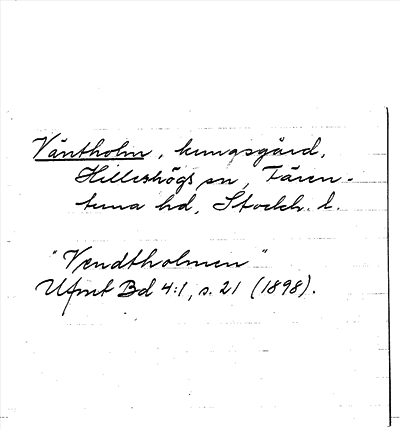 Väntholm, kungsgård,
Hilleshögs sn, Fären-
tuna hd, Stockh. l.
"Vendtholmen"
Ufmt Bd 4:1, s. 21 (1898).